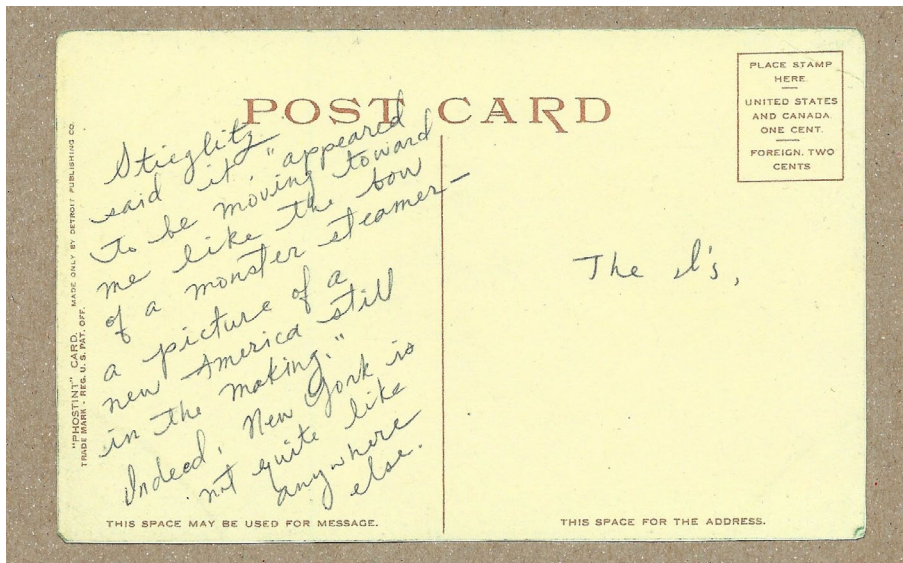 POST CARD
PLACE STAMP
HERE
UNITED STATES
AND CANADA
ONE CENT.
FOREIGN, TWO
CENTS
"PHOSTINT" CARD. MADE ONLY BY DETROIT PUBLISHING CO.
TRADE MARK - REG. U.S. PAT. OFF.
Stieglitz
said it "appeared
to be moving toward
me like the bow
of a monster steamer—
a picture of a
new America still
in the making."
Indeed, New York is
not quite like
anywhere
else.
The I's,
THIS SPACE MAY BE USED FOR MESSAGE.
THIS SPACE FOR THE ADDRESS.